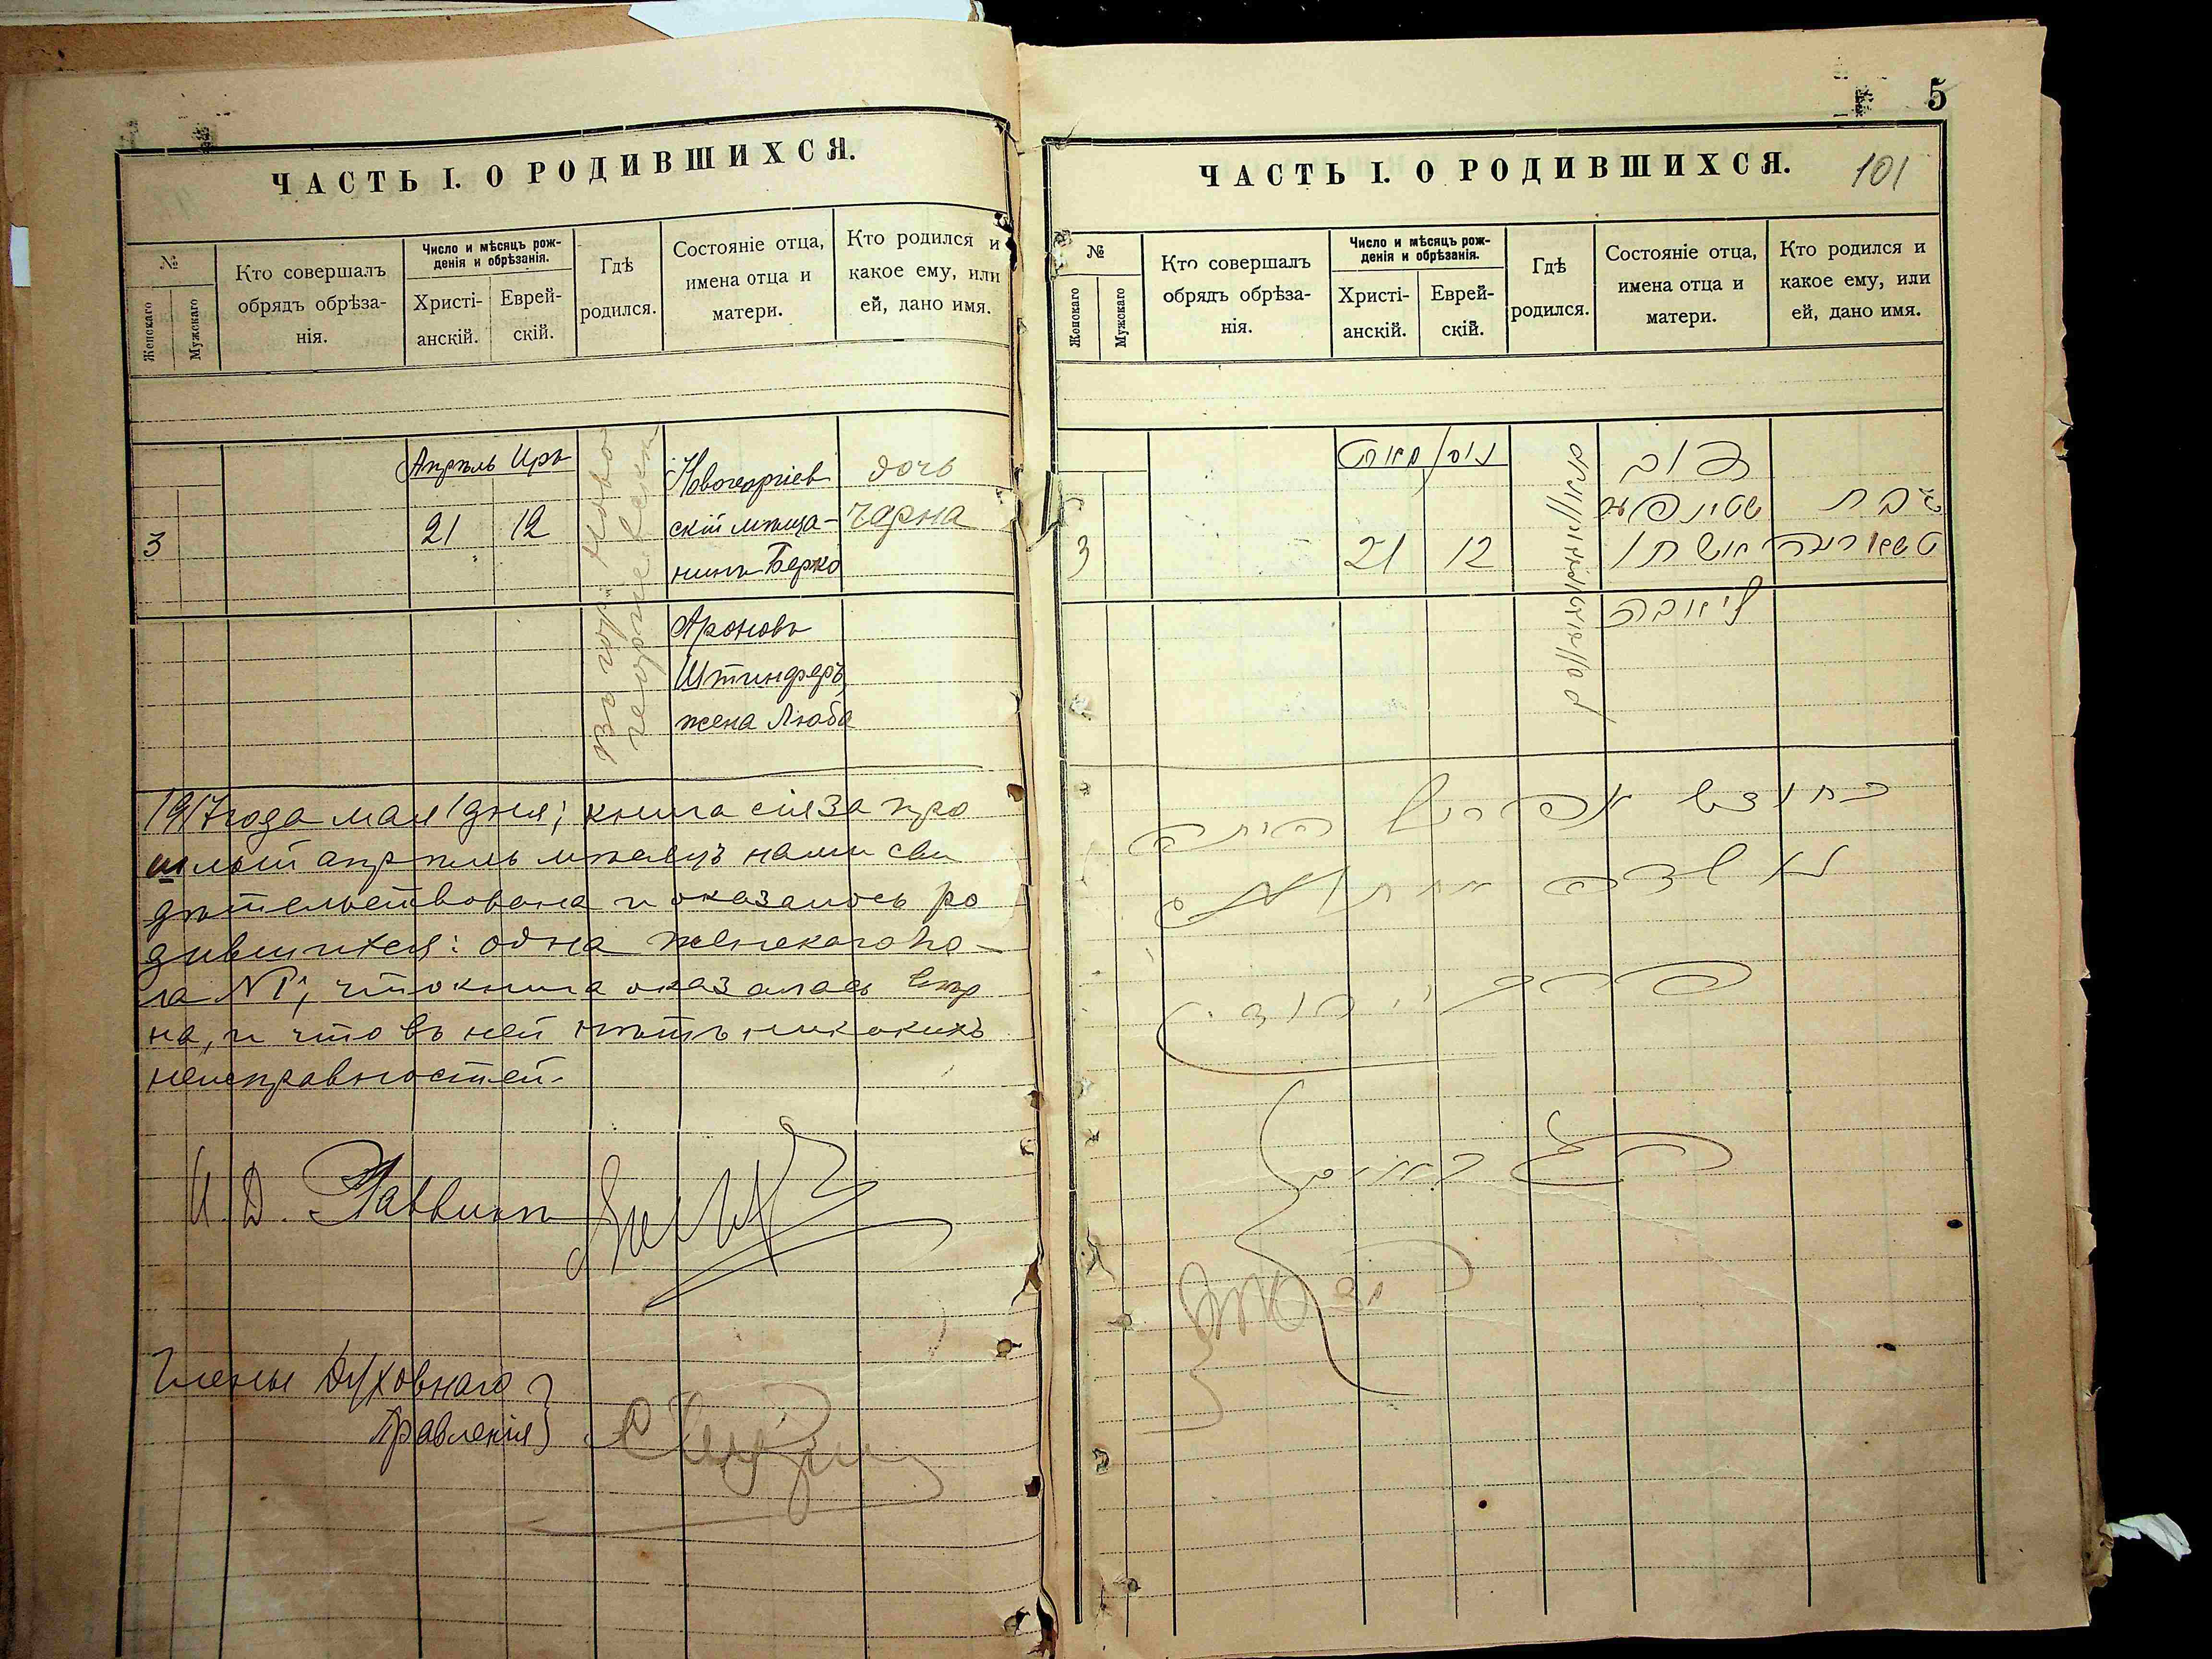 ЧАСТЬ I. О РОДИВШИХСЯ.
№
Женскаго
Мужскаго
Кто совершалъ
обрядъ обрѣза-
нія.
Число и мѣсяцъ рож-
денія и обрѣзанія.
Христі-
анскій.
Еврей-
скій.
Гдѣ
родился.
Состояніе отца,
имена отца и
матери.
Кто родился и
какое ему, или
ей, дано имя.
Апрѣль Иръ
3
21
12
Въ гор. Ново
георгіевскѣ
Новогеоргіев
скій мѣща-
нинъ Берко
Ароновъ
Штинферъ,
жена Люба
дочь
Чарна
1917 года мая 1 дня; книга сія за про
шлый апрѣль мѣсяцъ нами сви
дѣтельствована и оказалось ро
дившихся: одна женскаго по-
ла № 1, что книга оказалась вѣр
на, и что въ ней нѣтъ никакихъ
неисправностей.
И. Д. Раввинъ
Члены Духовнаго
Правленія
5
ЧАСТЬ I. О РОДИВШИХСЯ.
101
№
Женскаго
Мужскаго
Кто совершалъ
обрядъ обрѣза-
нія.
Число и мѣсяцъ рож-
денія и обрѣзанія.
Христі-
анскій.
Еврей-
скій.
Гдѣ
родился.
Состояніе отца,
имена отца и
матери.
Кто родился и
какое ему, или
ей, дано имя.
3
21
12
דוב
אשתו
ליובה
בת
בחודש אפריל היתה